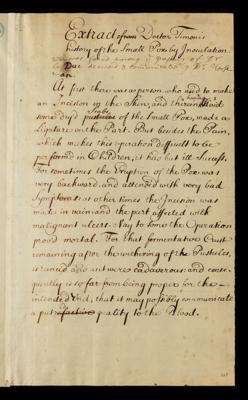 Extract from Doctor Timoni's
history of the Small Pox by Inoculation.
was found among papers of
Due
At first there was a person, who used to make
an Incision in the Skin, and therein laid
some dry'd Scabs pustules of the Small Pox, made a
Ligature on the Part. But besides the Pain,
which makes this operation difficult to be
performed in Children, it had but ill Success.
For sometimes the Eruption of the Pox was
very backward and attended with very bad
Symptoms: at other times the Incision was
made in vain and the part affected with
malignant ulcers. Nay to some the Operation
proved mortal. For that fermentative Crust
remaining after the withering of the Pustules,
is rancid and cadaverous: and conse-
quently is so far from being proper for the
intended End, that it may possibly communicate
a putrefactive quality to the Blood.